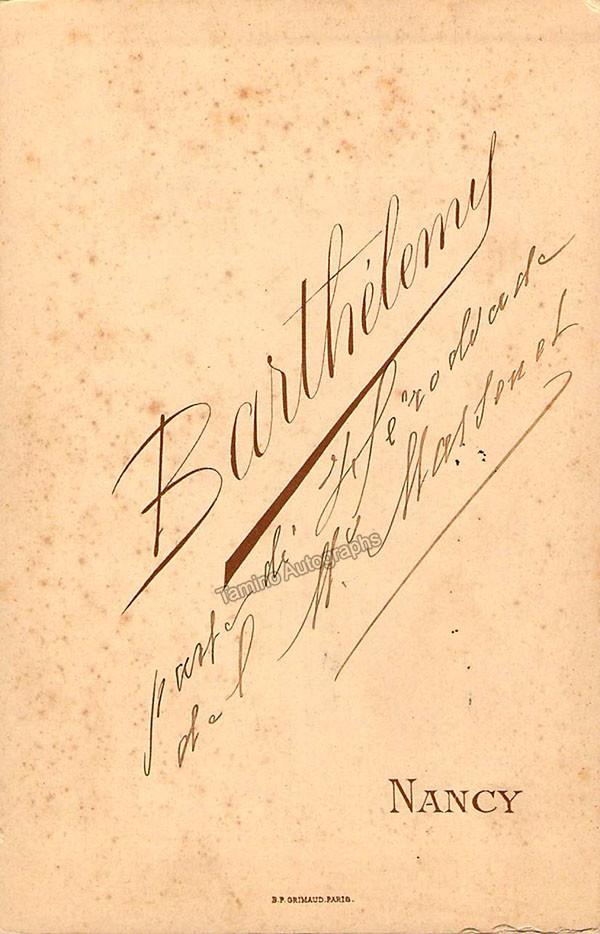 Barthélemy
parte di Hérodiade
del M.º Massenet
Tamino Autographs
NANCY
B.P. GRIMAUD.PARIS.